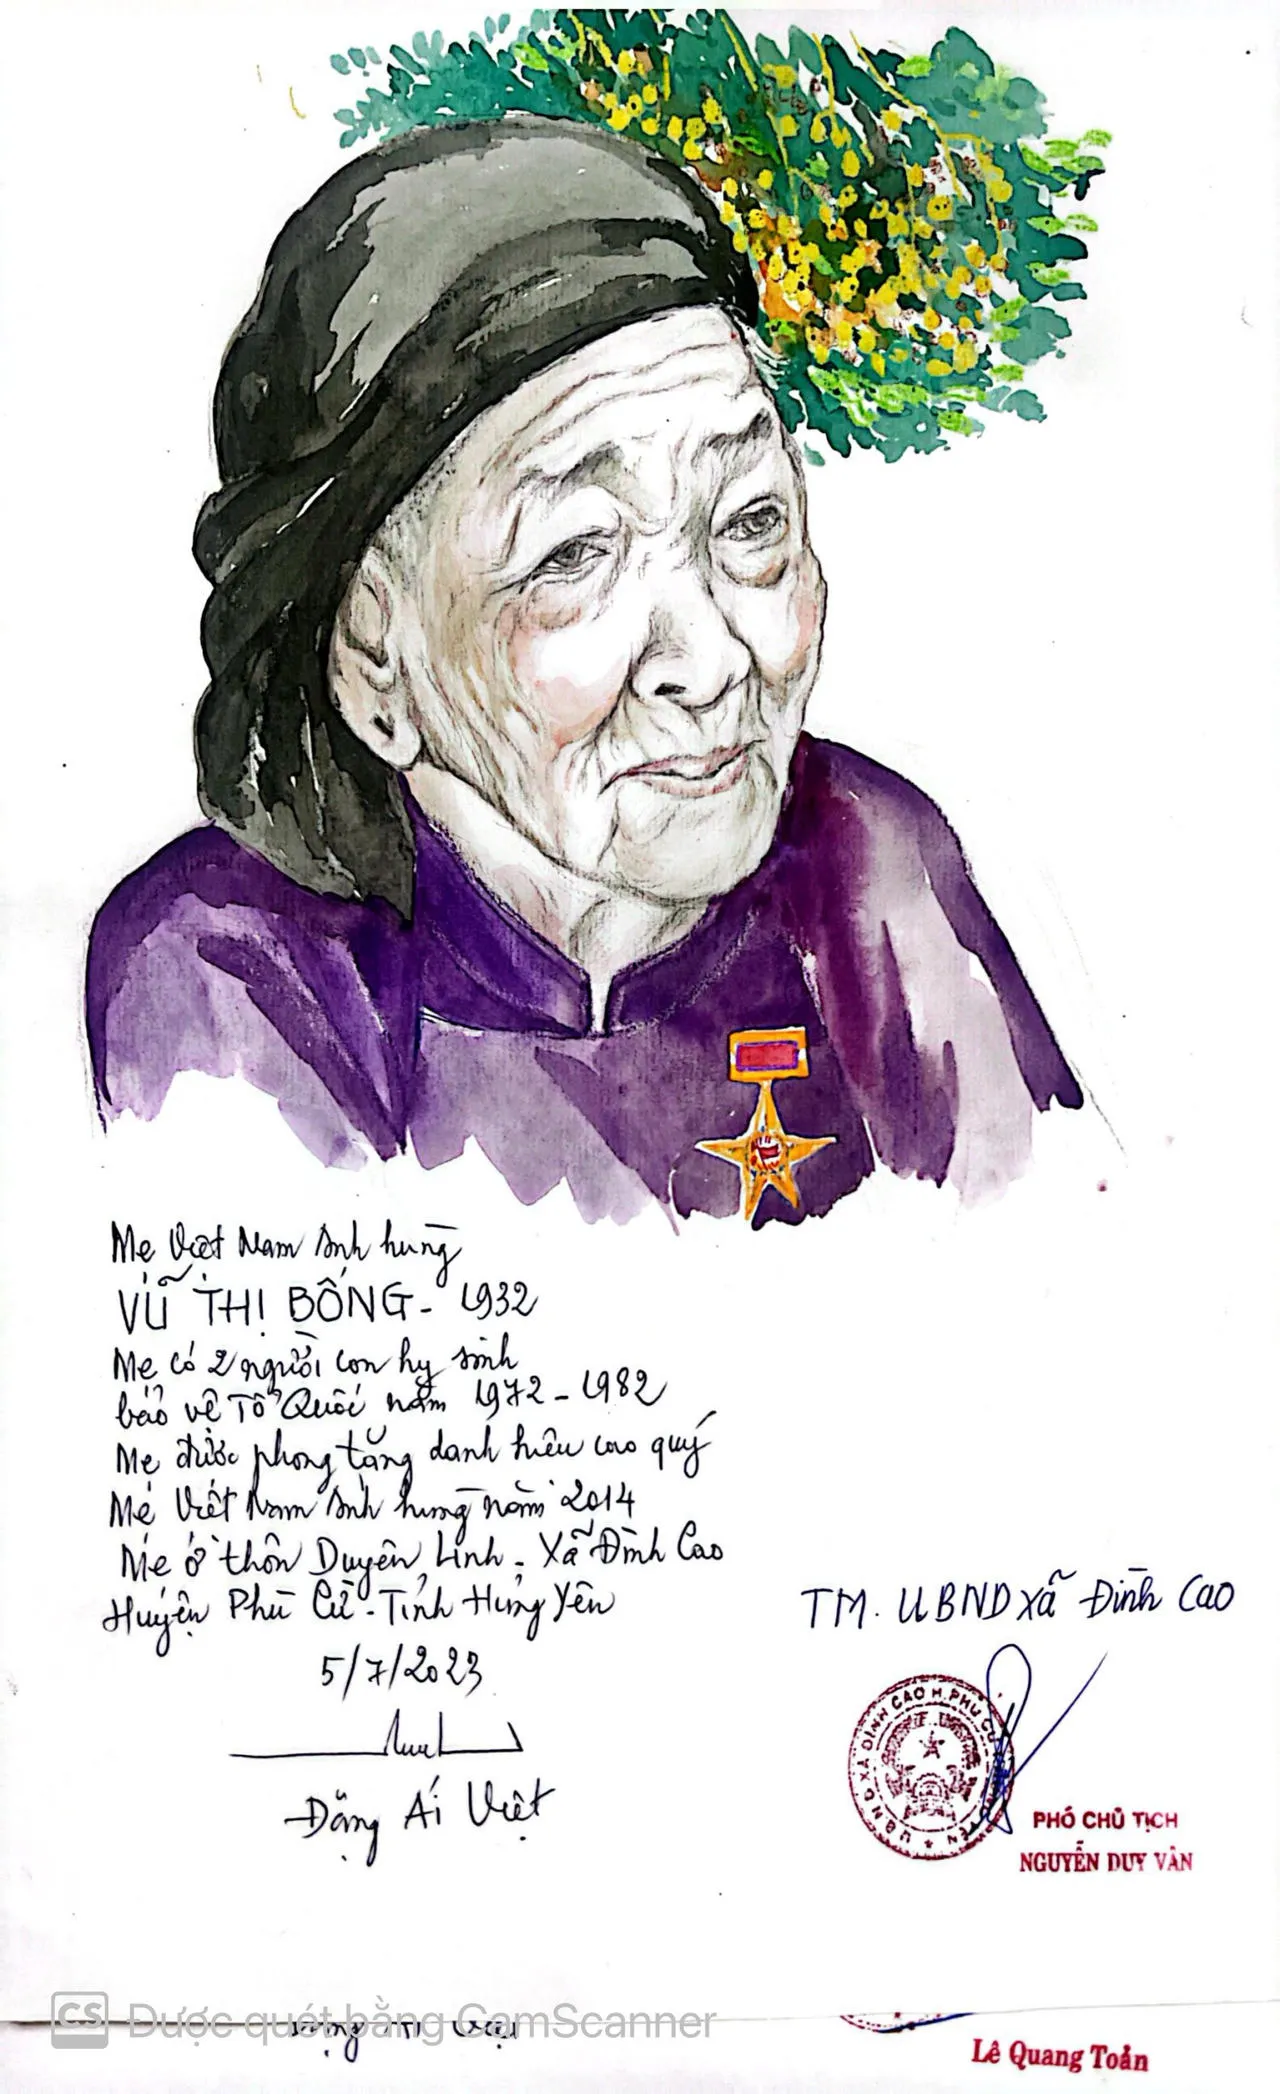 Mẹ Việt Nam Anh hùng
VŨ THỊ BỐNG - 1932
Mẹ có 2 người con hy sinh
bảo vệ Tổ Quốc năm 1972 - 1982
Mẹ được phong tặng danh hiệu cao quý
Mẹ Việt Nam Anh hùng năm 2014
Mẹ ở thôn Duyên Linh - Xã Đình Cao
Huyện Phù Cừ - Tỉnh Hưng Yên
5/7/2023
Đặng Ái Việt
TM. UBND xã Đình Cao
U.B.N.D XÃ ĐÌNH CAO H. PHÙ CỪ
PHÓ CHỦ TỊCH
NGUYỄN DUY VÂN
CS Được quét bằng CamScanner
Lê Quang Toản